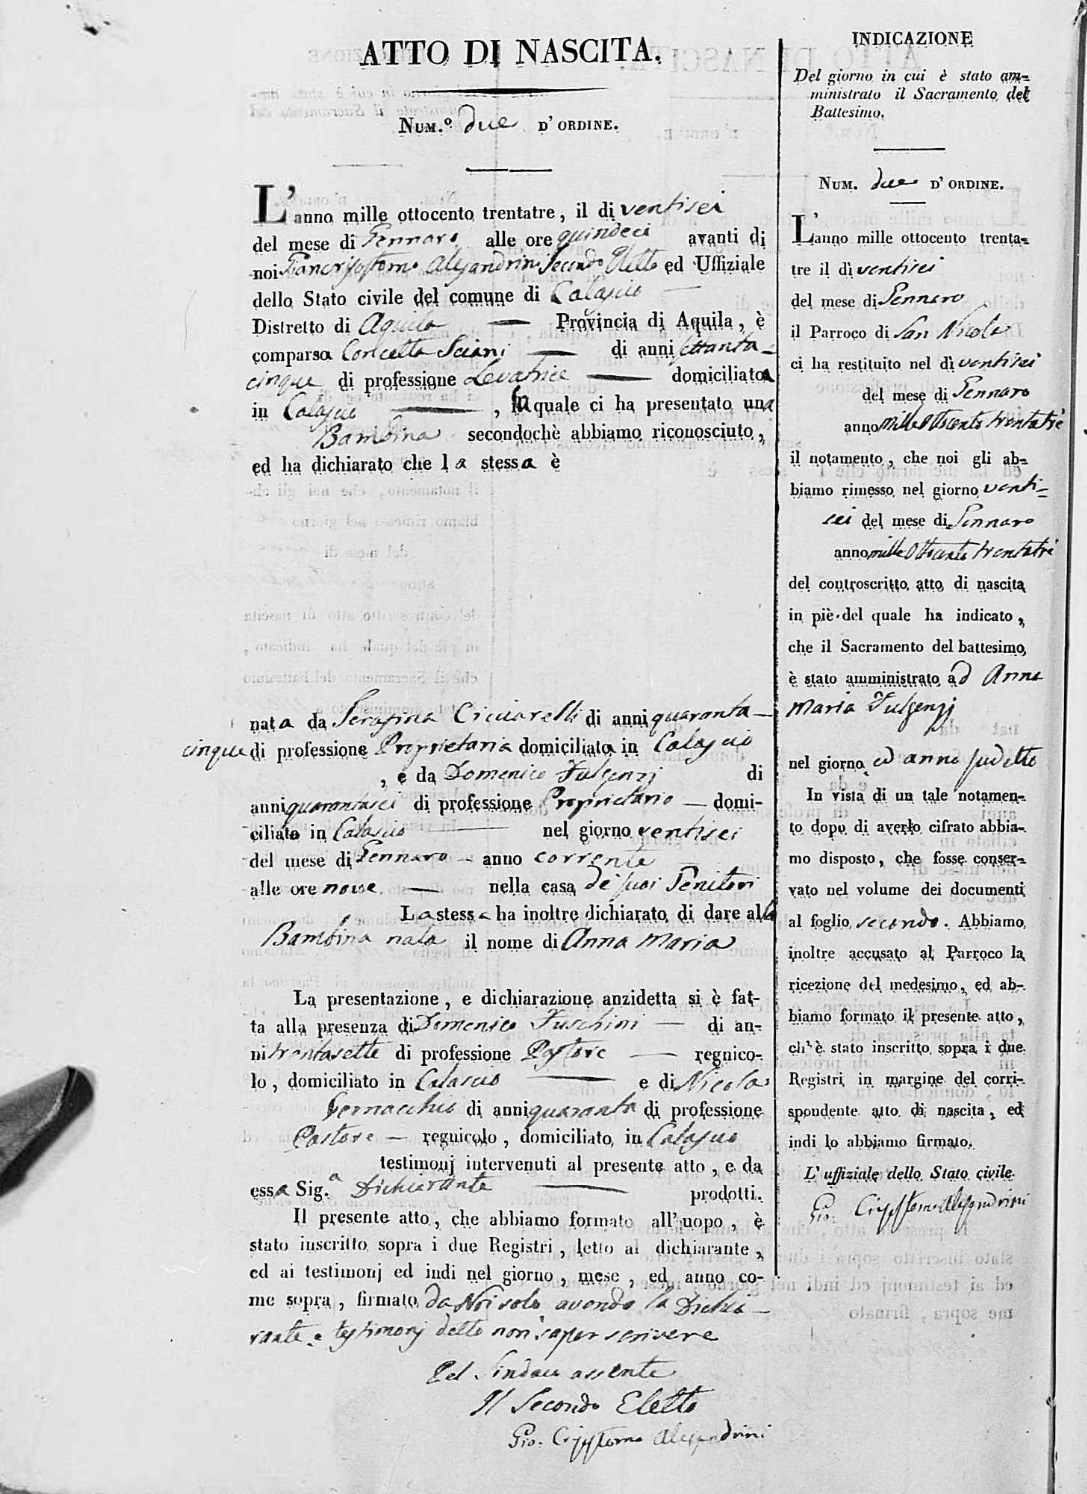 ATTO DI NASCITA.
NUM.º due D'ORDINE.
L'anno mille ottocento trentatre, il di ventisei
del mese di Gennaro alle ore quindeci avanti di
noi Giancrisostomo Alesandrini Secondo Eletto ed Uffiziale
dello Stato civile del comune di Calascio
Distretto di Aquila — Provincia di Aquila, è
comparsa Concetta Sciani — di anni settanta-
cinque di professione Levatrice — domiciliata
in Calascio — , la quale ci ha presentato una
Bambina secondochè abbiamo riconosciuto,
ed ha dichiarato che la stessa è
nata da Serafina Ciciarelli di anni quaranta-
cinque di professione Proprietaria domiciliata in Calascio
, e da Domenico Fulgenzj di
anni quarantasei di professione Proprietario — domi-
ciliato in Calascio — nel giorno ventisei
del mese di Gennaro — anno corrente
alle ore nove — nella casa de' suoi Genitori
La stessa ha inoltre dichiarato di dare alla
Bambina nata il nome di Anna Maria
La presentazione, e dichiarazione anzidetta si è fat-
ta alla presenza di Domenico Fuschini — di an-
ni trentasette di professione Pastore — regnico-
lo, domiciliato in Calascio — e di Nicola
di anni quaranta di professione
Pastore — regnicolo, domiciliato in Calascio
testimonj intervenuti al presente atto, e da
essa Sig.a Dichiarante — prodotti.
Il presente atto, che abbiamo formato all'uopo, è
stato inscritto sopra i due Registri, letto al dichiarante,
ed ai testimonj ed indi nel giorno, mese, ed anno co-
me sopra, firmato da Noi solo avendo la Dichia-
rante e testimonj detto non saper scrivere
Pel Sindaco assente
Il Secondo Eletto
Gio. Crisostomo Alesandrini
INDICAZIONE
Del giorno in cui è stato am-
ministrato il Sacramento del
Battesimo.
NUM. due D'ORDINE.
L'anno mille ottocento trenta-
tre il dì ventisei
del mese di Gennaro
il Parroco di San Nicola
ci ha restituito nel dì ventisei
del mese di Gennaro
anno mille Ottocento trentatrè
il notamento, che noi gli ab-
biamo rimesso nel giorno venti-
sei del mese di Gennaro
anno mille Ottocento trentatrè
del controscritto atto di nascita
in piè del quale ha indicato,
che il Sacramento del battesimo
è stato amministrato ad Anna
Maria Fulgenzj
nel giorno ed anno sudetto
In vista di un tale notamen-
to dopo di averlo cifrato abbia-
mo disposto, che fosse conser-
vato nel volume dei documenti
al foglio secondo. Abbiamo
inoltre accusato al Parroco la
ricezione del medesimo, ed ab-
biamo formato il presente atto,
ch'è stato inscritto sopra i due
Registri in margine del corri-
spondente atto di nascita, ed
indi lo abbiamo firmato.
L'uffiziale dello Stato civile
Gio: Crisostomo Alesandrini